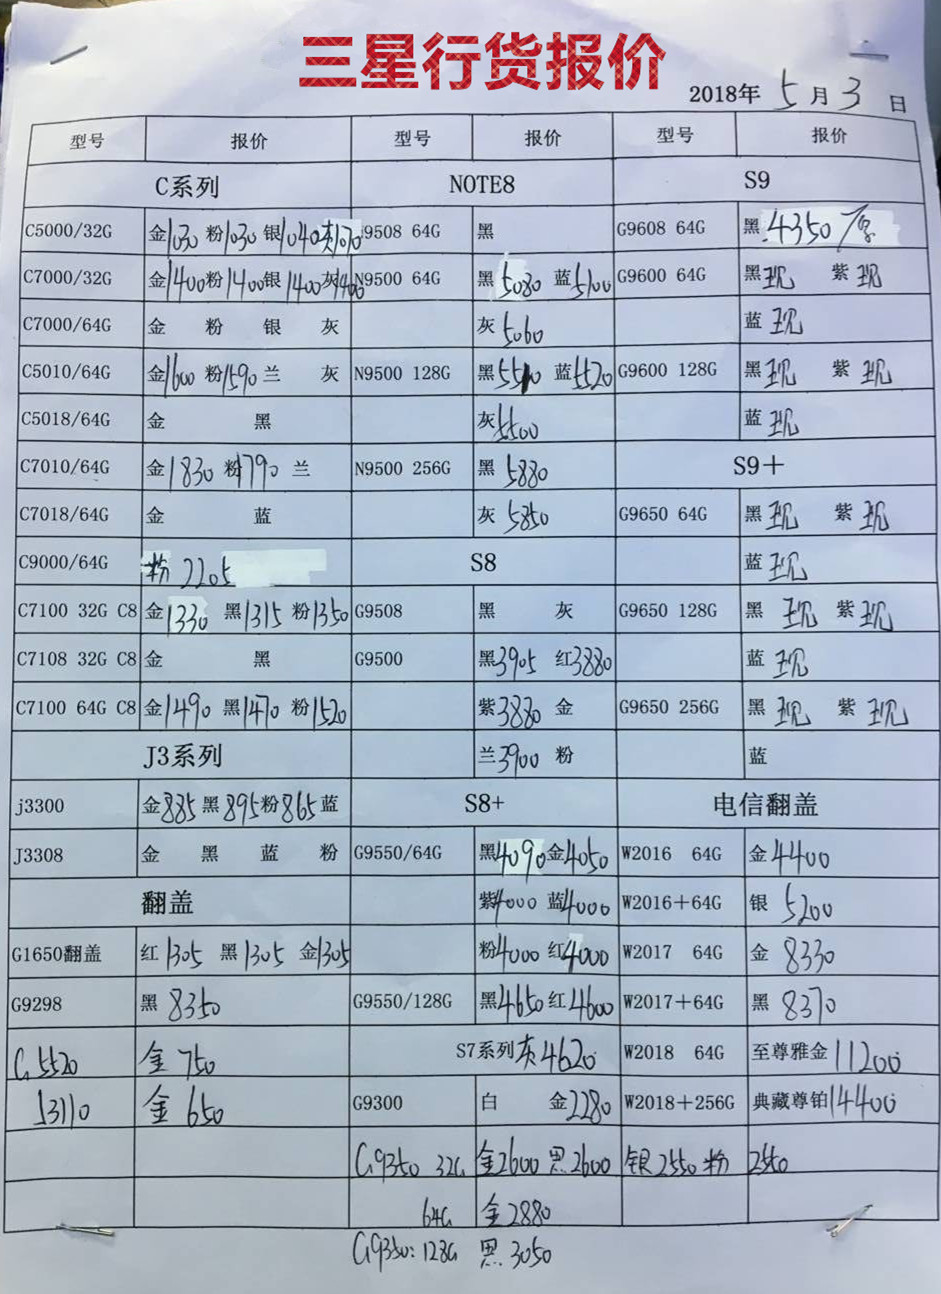 三星行货报价
2018年 5月 3日
型号 报价 型号 报价 型号 报价
C系列 NOTE8 S9
C5000/32G 金1030 粉1030 银1040 灰1070 N9508 64G 黑 G9608 64G 黑 4350/
C7000/32G 金1400 粉1400 银1400 灰1400 N9500 64G 黑5080 蓝5100 G9600 64G 黑现 紫现
C7000/64G 金 粉 银 灰 灰5060 蓝现
C5010/64G 金1600 粉1590 兰 灰 N9500 128G 黑5510 蓝5520 G9600 128G 黑现 紫现
C5018/64G 金 黑 灰5500 蓝现
C7010/64G 金1830 粉1790 兰 N9500 256G 黑5880 S9+
C7018/64G 金 蓝 灰5850 G9650 64G 黑现 紫现
C9000/64G 粉 2205 S8 蓝现
C7100 32G C8 金1330 黑1315 粉1350 G9508 黑 灰 G9650 128G 黑现 紫现
C7108 32G C8 金 黑 G9500 黑3905 红3880 蓝现
C7100 64G C8 金1490 黑1470 粉1520 紫3880 金 G9650 256G 黑现 紫现
J3系列 兰3900 粉 蓝
j3300 金885 黑895 粉865 蓝 S8+ 电信翻盖
J3308 金 黑 蓝 粉 G9550/64G 黑4090 金4050 W2016 64G 金4400
翻盖 紫4000 蓝4000 W2016+64G 银 5200
G1650翻盖 红1305 黑1305 金1305 粉4000 红4000 W2017 64G 金 8330
G9298 黑 8350 G9550/128G 黑4650 红4600 W2017+64G 黑 8370
G5520 金 750 S7系列 灰4620 W2018 64G 至尊雅金11200
J3110 金 650 G9300 白 金2280 W2018+256G 典藏尊铂14400
G9350 32G 金2600 黑2600 银2550 粉 2550
64G 金2880
G9350: 128G 黑 3050